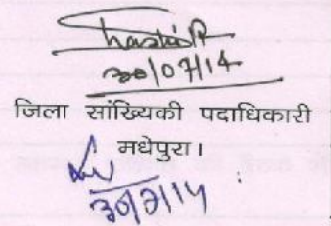 30/07/14
जिला सांख्यिकी पदाधिकारी
मधेपुरा।
30/7/14